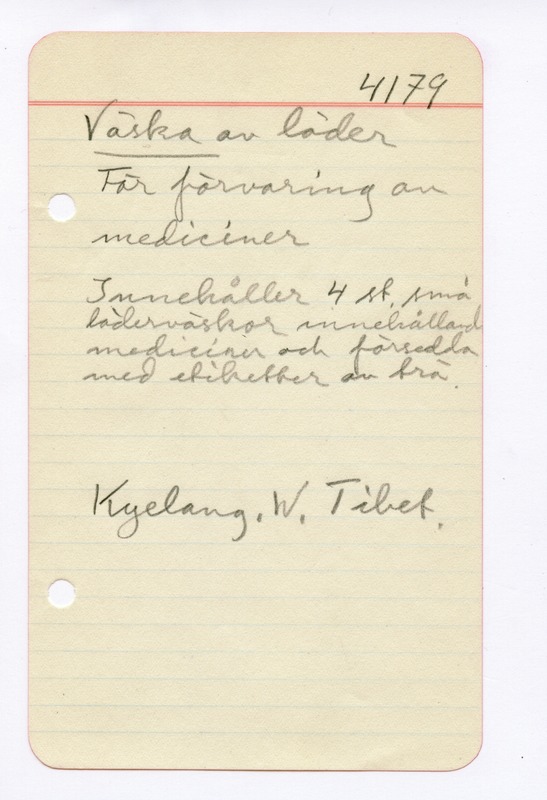 4179
Väska av läder
För förvaring av
mediciner
Innehåller 4 st. små
läderväskor innehålland
mediciner och försedda
med etiketter av trä.
Kyelang, W. Tibet.